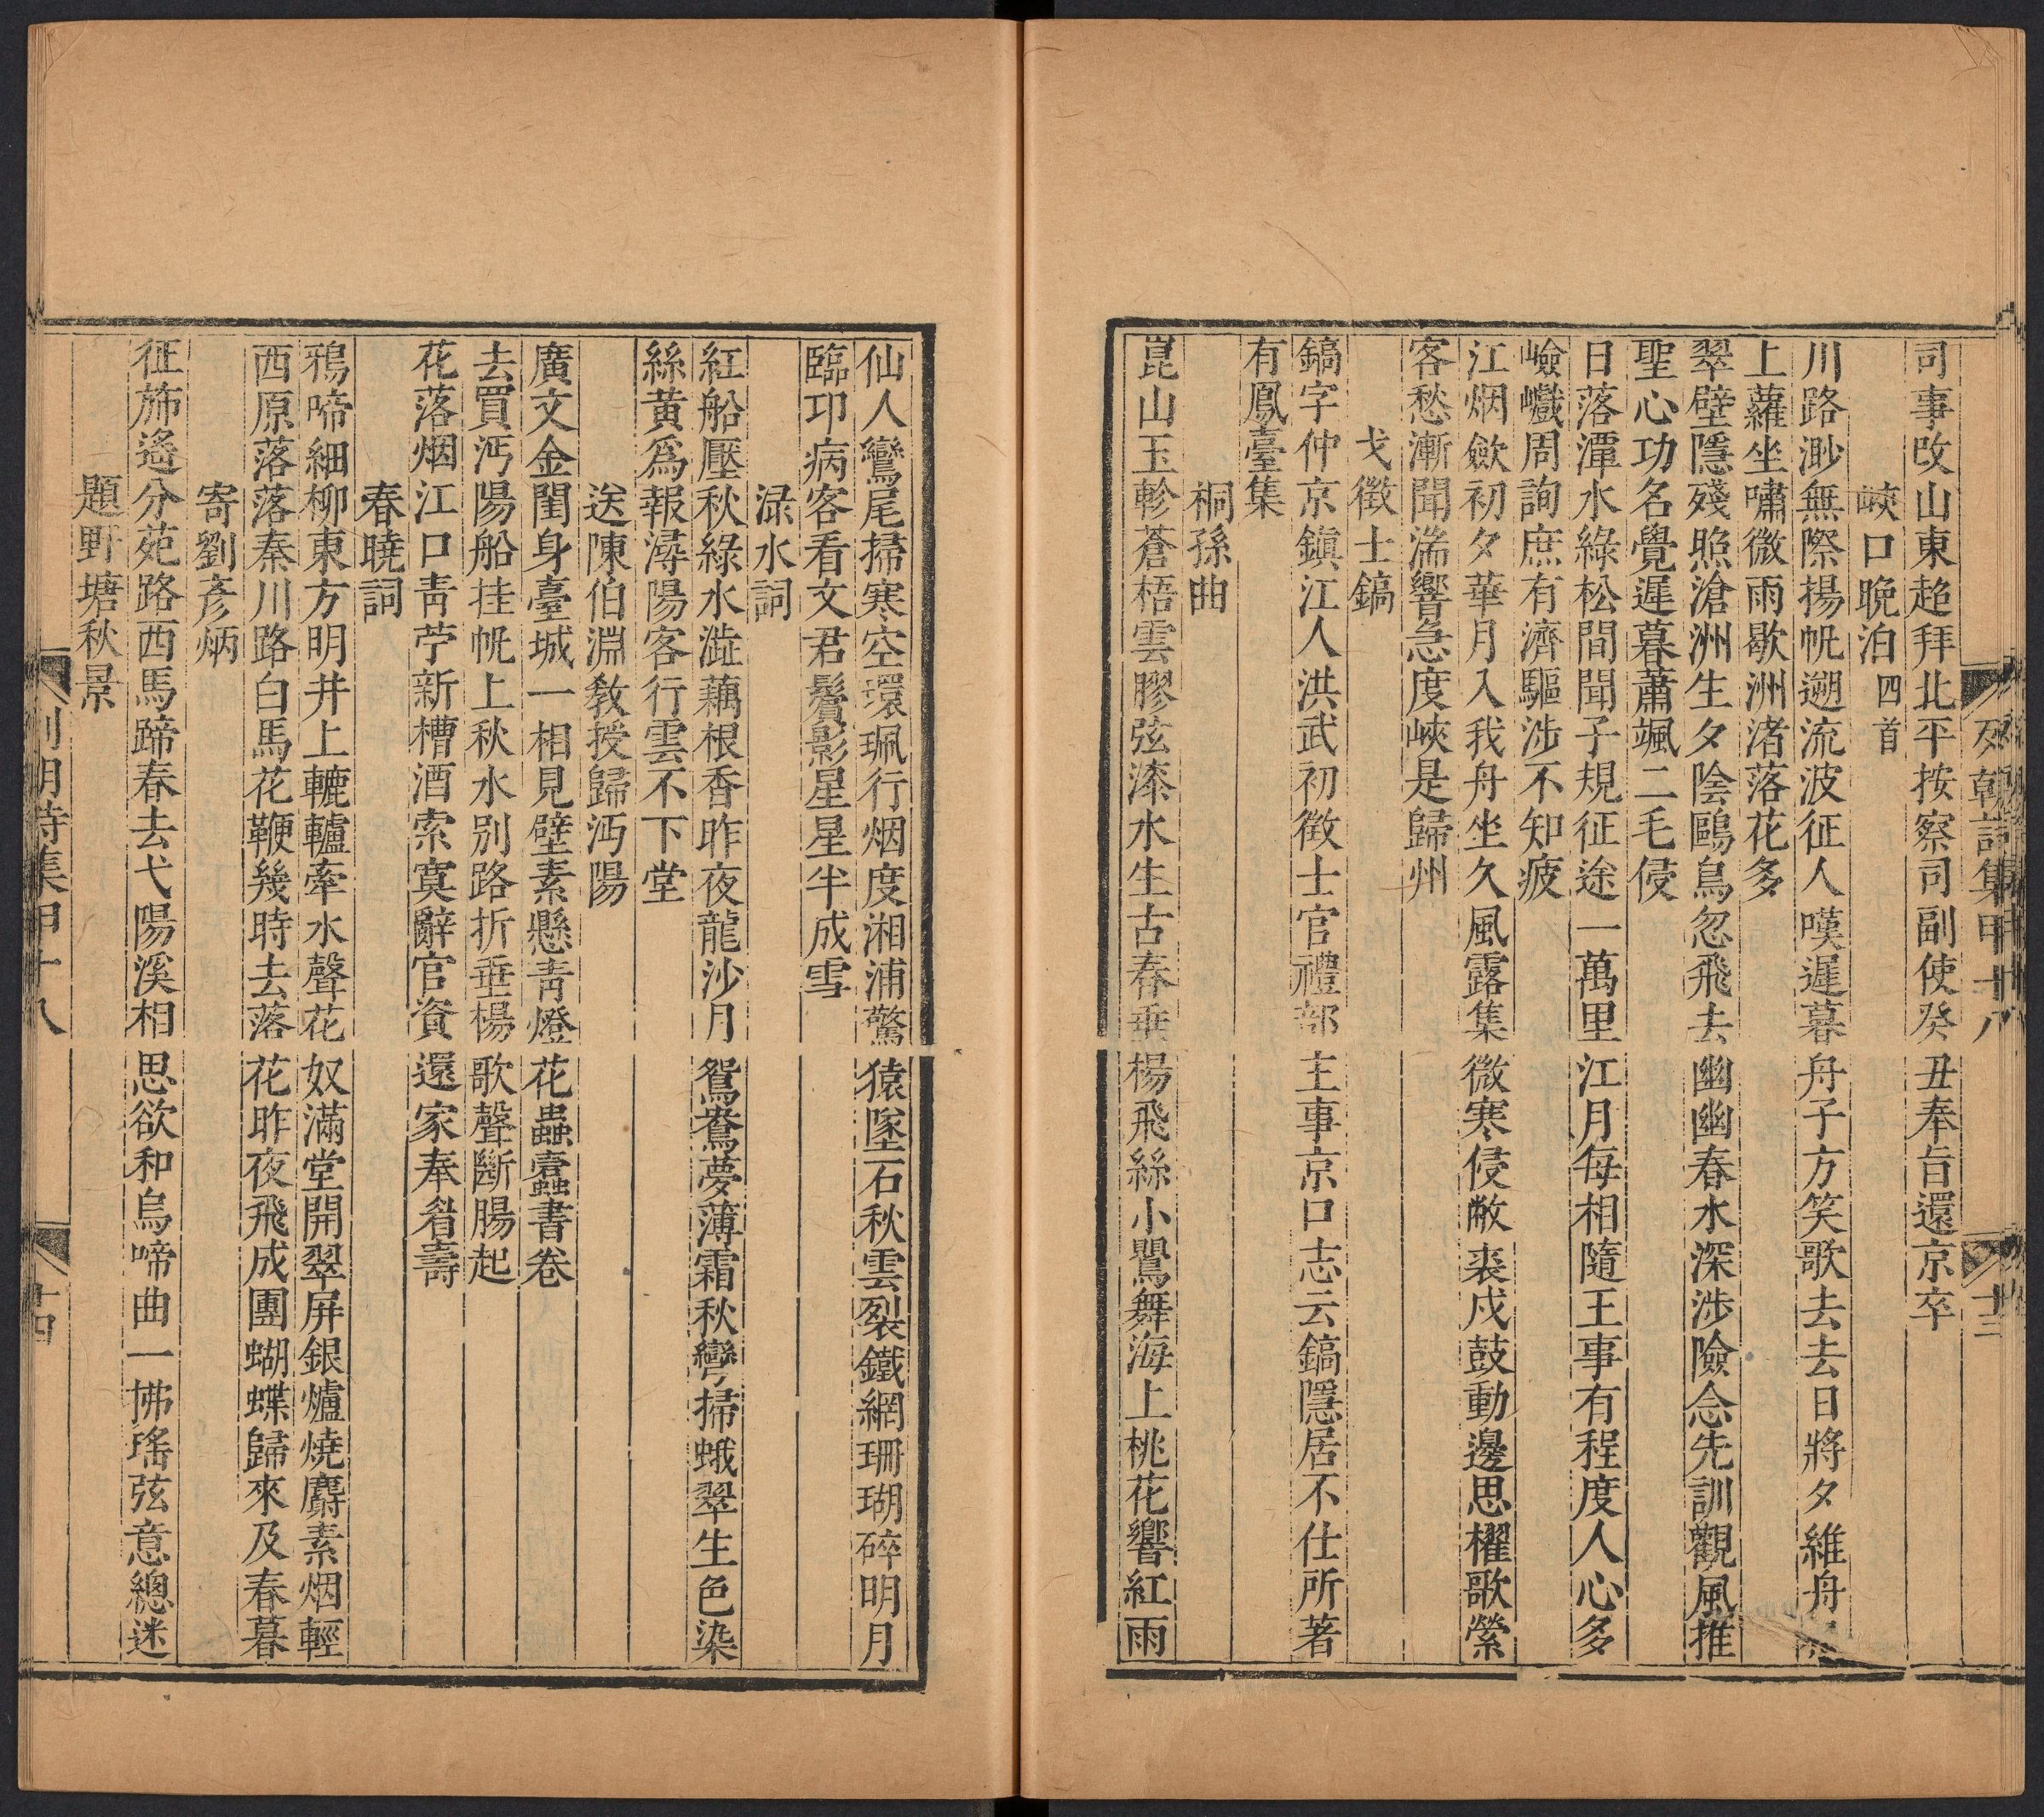 列朝詩集甲十八 十三
司事改山東趂拜北平按察司副使癸丑奉旨還京卒
峽口晚泊四首
川路渺無際揚帆遡流波征人嘆遲暮舟子方笑歌去去日將夕維舟
上蘿坐嘯微雨歇洲渚落花多
翠壁隱殘照滄洲生夕陰鷗鳥忽飛去幽幽春水深涉險念先訓觀風推
聖心功名覺遲暮蕭颯二毛侵
日落潭水綠松間聞子規征途一萬里江月每相隨王事有程度人心多
嶮巇周詢庶有濟驅涉不知疲
江烟歛初夕華月入我舟坐久風露集微寒侵敝裘戍鼓動邊思櫂歌縈
客愁漸聞湍響急度峽是歸州
戈徵士鎬
鎬字仲京鎭江人洪武初徵士官禮部主事京口志云鎬隱居不仕所著
有鳳臺集
桐孫曲
崑山玉軫蒼梧雲膠弦漆水生古春垂楊飛絲小鸎舞海上桃花響紅雨
仙人鸞尾掃寒空環珮行烟度湘浦驚猿墜石秋雲裂鐵網珊瑚碎明月
臨卭病客看文君鬢影星星半成雪
淥水詞
紅船壓秋綠水澁藕根香昨夜龍沙月鴛鴦夢薄霜秋彎掃蛾翠生色染
絲黃爲報潯陽客行雲不下堂
送陳伯淵敎授歸沔陽
廣文金閨身臺城一相見壁素懸靑燈花蟲蠹書卷
去買沔陽船挂帆上秋水別路折垂楊歌聲斷腸起
花落烟江口靑苧新槽酒索寞辭官資還家奉耇壽
春曉詞
鴉啼細柳東方明井上轆轤牽水聲花奴滿堂開翠屏銀爐燒麝素烟輕
西原落落秦川路白馬花鞭幾時去落花昨夜飛成團蝴蝶歸來及春暮
寄劉彥炳
征斾遙分苑路西馬蹄春去弋陽溪相思欲和烏啼曲一拂瑤弦意總迷
題野塘秋景
列朝詩集甲十八 十四